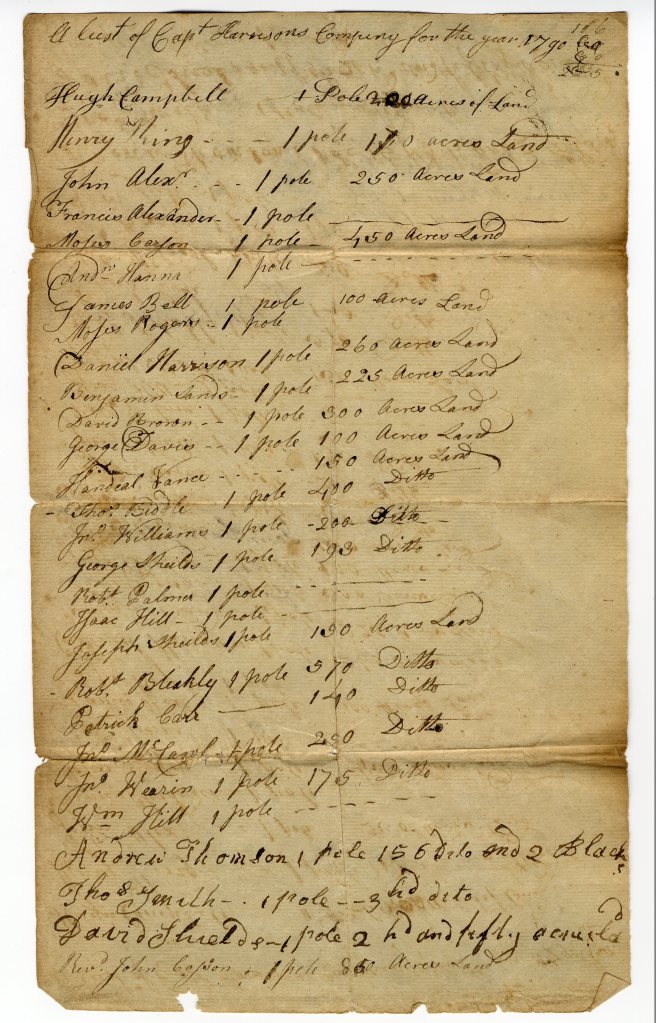 A List of Capt Harrisons Company for the year 1790
Hugh Campbell 1 Pole 200 Acres of Land
Henry King - - - 1 pole 150 acres Land
John Alexr - - - 1 pole 250 Acres Land
Francis Alexander - - 1 pole
Moses Carson 1 pole - 450 Acres Land
Andw Hanna 1 pole - - - - - - - -
James Bell 1 pole 100 Acres Land
Moses Rogers - 1 pole
Daniel Harrison 1 pole 260 Acres Land
Benjamin Sands - 1 pole 225 Acres Land
David Brown - - 1 pole 300 Acres Land
George Davis - - 1 pole 100 Acres Land
Handeal Vance - - - - - 150 Acres Land
Thos Biddle 1 pole 400 Ditto
Jno Williams 1 pole - 200 - Ditto
George Sheilds 1 pole 193 Ditto
Robt Palmer 1 pole
Isaac Hill - 1 pole - - -
Joseph Sheilds 1 pole 150 Acres Land
Robt Bleakly 1 pole 570 Ditto
Patrick Carr 140 Ditto
Jno 1 pole 250 Ditto
Jno Wearin 1 pole 175 Ditto
Wm Hill 1 pole - - - - - -
Andrew Thomson 1 pole 156 Dito and 2 Blacks
Thos Smith - . 1 pole - - 3 hd dito
David Shields - 1 pole 2 hd and fifty
Revd John 1 pole Acres Land